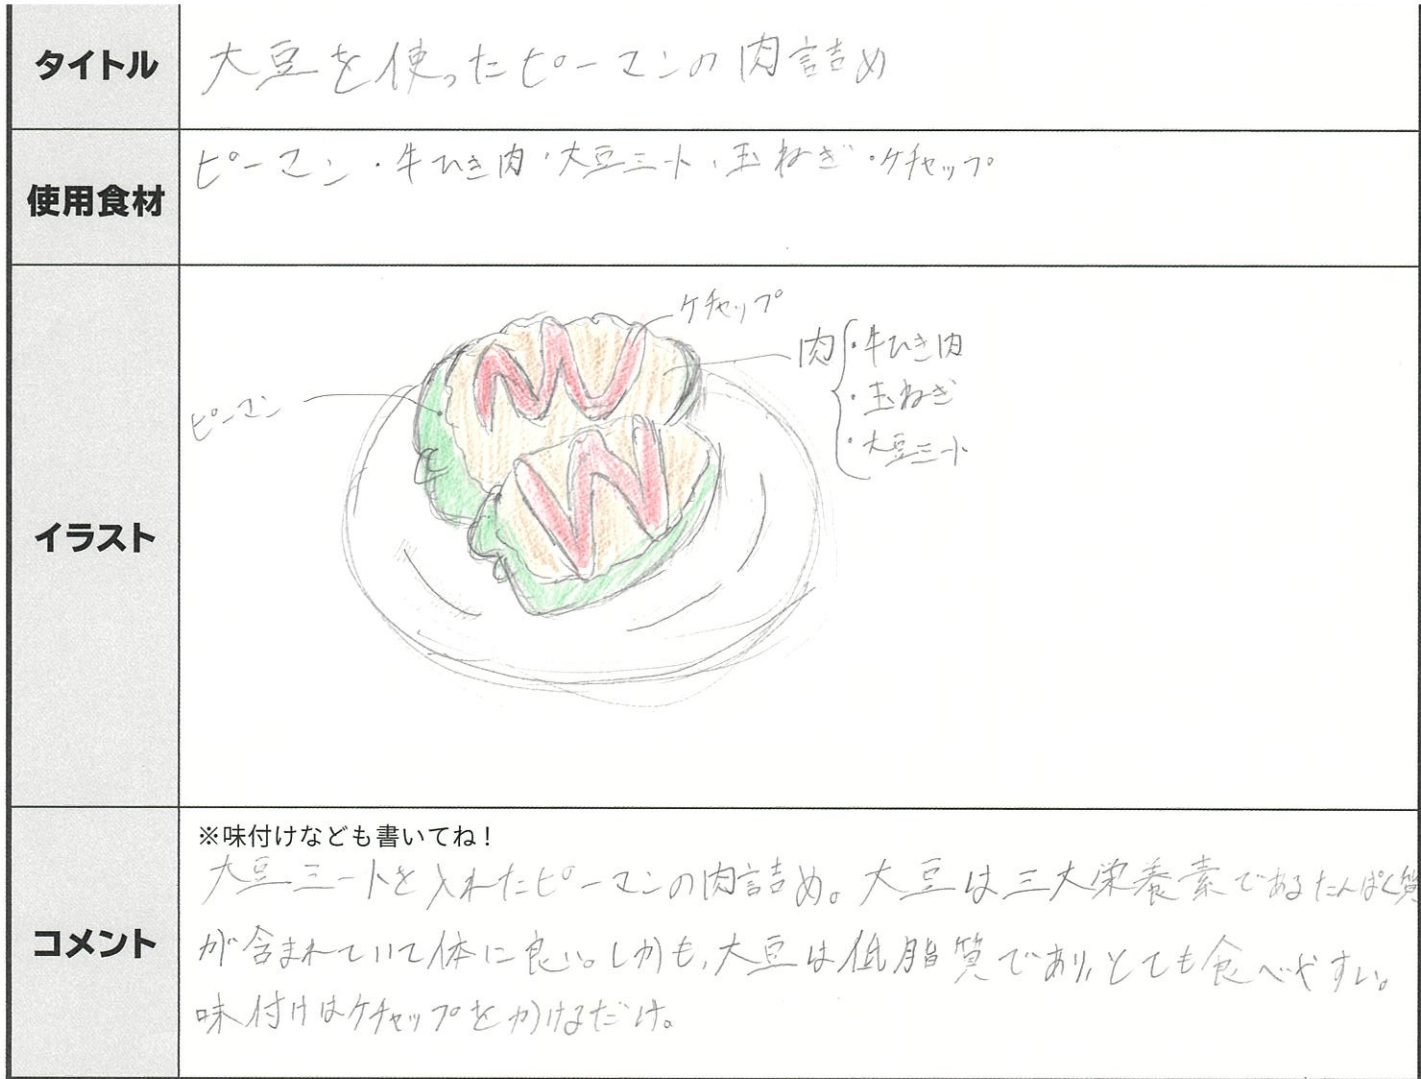 タイトル
大豆を使ったピーマンの肉詰め
使用食材
ピーマン・牛ひき肉・大豆ミート・玉ねぎ・ケチャップ
イラスト
ケチャップ
ピーマン
肉
・牛ひき肉
・玉ねぎ
・大豆ミート
コメント
※味付けなども書いてね！
大豆ミートを入れたピーマンの肉詰め。大豆は三大栄養素であるたんぱく質
が含まれていて体に良い。しかも、大豆は低脂質であり、とても食べやすい。
味付けはケチャップをかけるだけ。